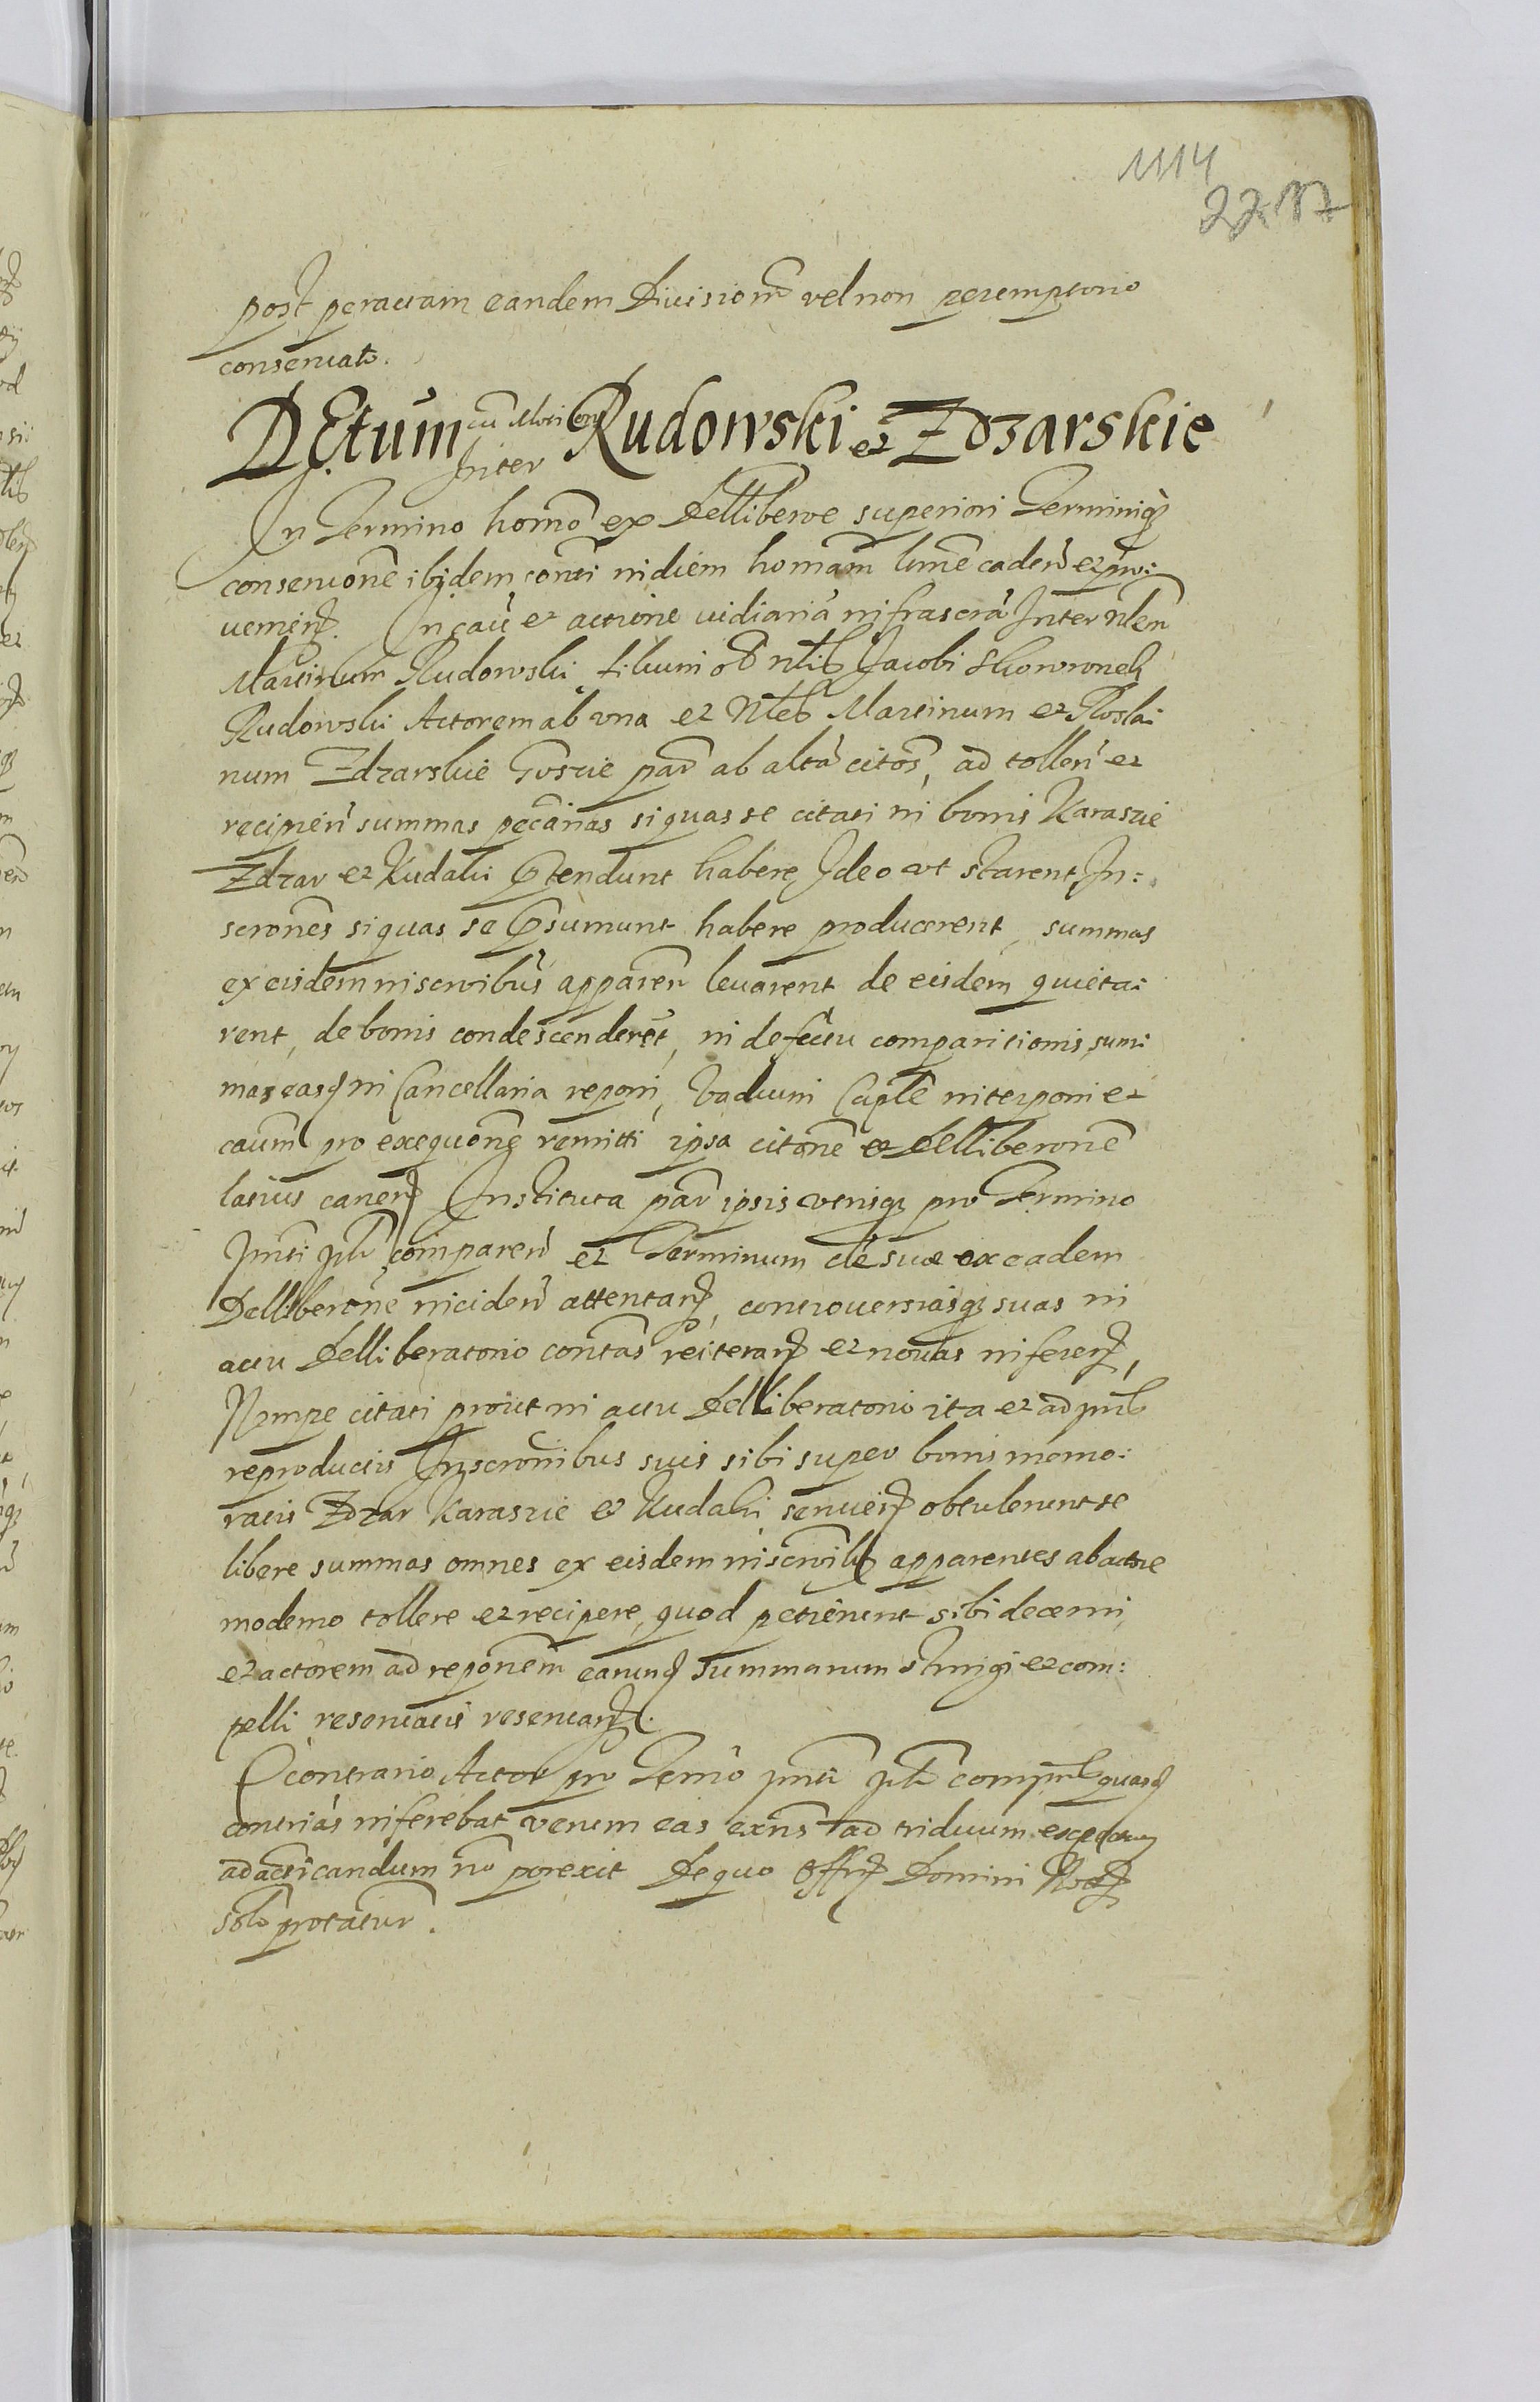 1114
2287
post peractam eandem Divisionē vel non peremptorio
conservato.
DEtum cū Motione Inter Rudowski et Zdzarskie
In Termino horno ex Delliberne superiori Terminiq3
conservonē ibidem contī in diem hornam lime caden et pro:
venien. In caū et actione iudiaria infrascra Inter nlem
Martinum Rudowski filium od nlis Jacobi Skowronek
Rudowski Actorem ab vna et Nles Martinum et Rosla:
num Zdzarskie Goscie par ab altā citos, ad tollen et
recipien summas pecanias si quas se citati in bonis Karascie
Zdzar et Kudaki ptendunt habere, Ideo vt starent, In:
scrones si quas se psumunt habere producerent, summas
ex eisdem inscronibus apparen levarent de eisdem quieta:
rent, de bonis condescenderēt, in defectu comparitionis sum:
mas easd in Cancellaria reponi, Vadium Caple interponi et
caum pro exequone remitti ipsa citone et Delliberone
latius canen Instituta par ipsis vtrisq3 pro Termino
Imti Ju comparen et Terminum cle sue ex eadem
Delliberone inciden attentan, controversiasq3 suas in
actu Delliberatorio contas reiteran et novas inferen,
Nempe citati prout in actu Delliberatorio ita et ad pns
reproductis Inscronibus suis sibi super bonis memo:
ratis Zdzar Karascie et Kudaki servien obtulerunt se
libere summas omnes ex eisdem inscronibus apparentes ab actore
moderno tollere et recipere, quod petierunt sibi decerni,
et actorem ad reponem earund summarum stringi et com:
pelli reservatis reservan.
E contrario Actor pro Termo pnti Ju compns quasd
contrias inferebat verum eas extns ad triduum
ad acticandum no porexit De quo Offm Domini
solo protatur.